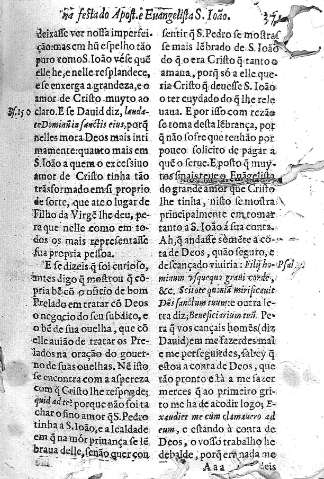 na festa do Apost. e Euangelista S. Ioão.
deixasse ver nossa imperfei-
ção: mas em hũ espelho tão
puro como S. Ioão vese q̃ue
elle he, e nelle resplandece,
e se enxerga a grandeza, e o
amor de Cristo muyto ao
claro. E se Dauid diz, lauda-
te Dominũ in sanctis eius, porq̃
nelles moca Deos mais inti-
mamente: quanto mais em
S. Ioão a quem o excessiuo
amor de Cristo tinha tão
trãsformado em si proprio
de sorte, que ate o lugar de
Filho da Virgẽ lhe deu, pe-
ra que nelle como em to-
dos os mais representasse
sua propria pessoa.
E se dizeis q̃ foi curioso,
antes digo q̃ mostrou q̃ cõ-
pria bẽ cõ o officio de bom
Prelado em tratar cõ Deus
o negocio do seu subdito, e
o bẽ de sua ouelha, que cõ
elle auião de tratar os Pre-
lados na oração do gouer-
no de suas ouelhas. Nẽ isto
se encontra com a aspereza
com q̃ Cristo lhe respõde;
quid ad te: porque não foi ta-
char o fino amor q̃ S. Pedro
tinha a S. Ioão, e a lealdade
em q̃ na mór priuança se lẽ
braua delle, senão quer con
sentir q̃ S. Pedro se mostras
se mais lẽbrado de S. Ioão
do que o era Cristo q̃ tanto o
amaua, porq̃ só a elle que-
ria Cristo q̃ deuesse S. Ioão
ter cuydado do q̃ lhe rele
uaua. E por isso com rezão
se toma desta lẽbrança, por
que não sofre que tenhão por
pouco solicito de pagar a
que o serue. E posto q̃ muy-
tos sinais teue o Euãgelista
do grande amor que Cristo
lhe tinha, nisso se mostra
principalmente em tomar
tanto a S. Ioão á sua conta.
Ah, q̃ andasse sõmẽte a cõ-
ta de Deos, quão seguro, e
descançado viuiria: Filij ho-
minum vsquequo graui corde,
&c. Scitote quoniã mirificauit
Dñs sanctum suum: e outra le-
tra diz; Beneficiarium suũ. Pe-
ra q̃ vos cançais homẽs (diz
Dauid) em me fazerdes mal
e me perseguirdes, sabey q̃
estou a conta de Deos, que
tão pronto está a me fazer
merces q̃ ao primeiro gri-
to me ha de acodir logo; E-
xaudiet me cũm clamauero ad
eum, e estando à conta de
Deos, o vosso trabalho he
debalde, porq̃ em nada me
Aaa deis